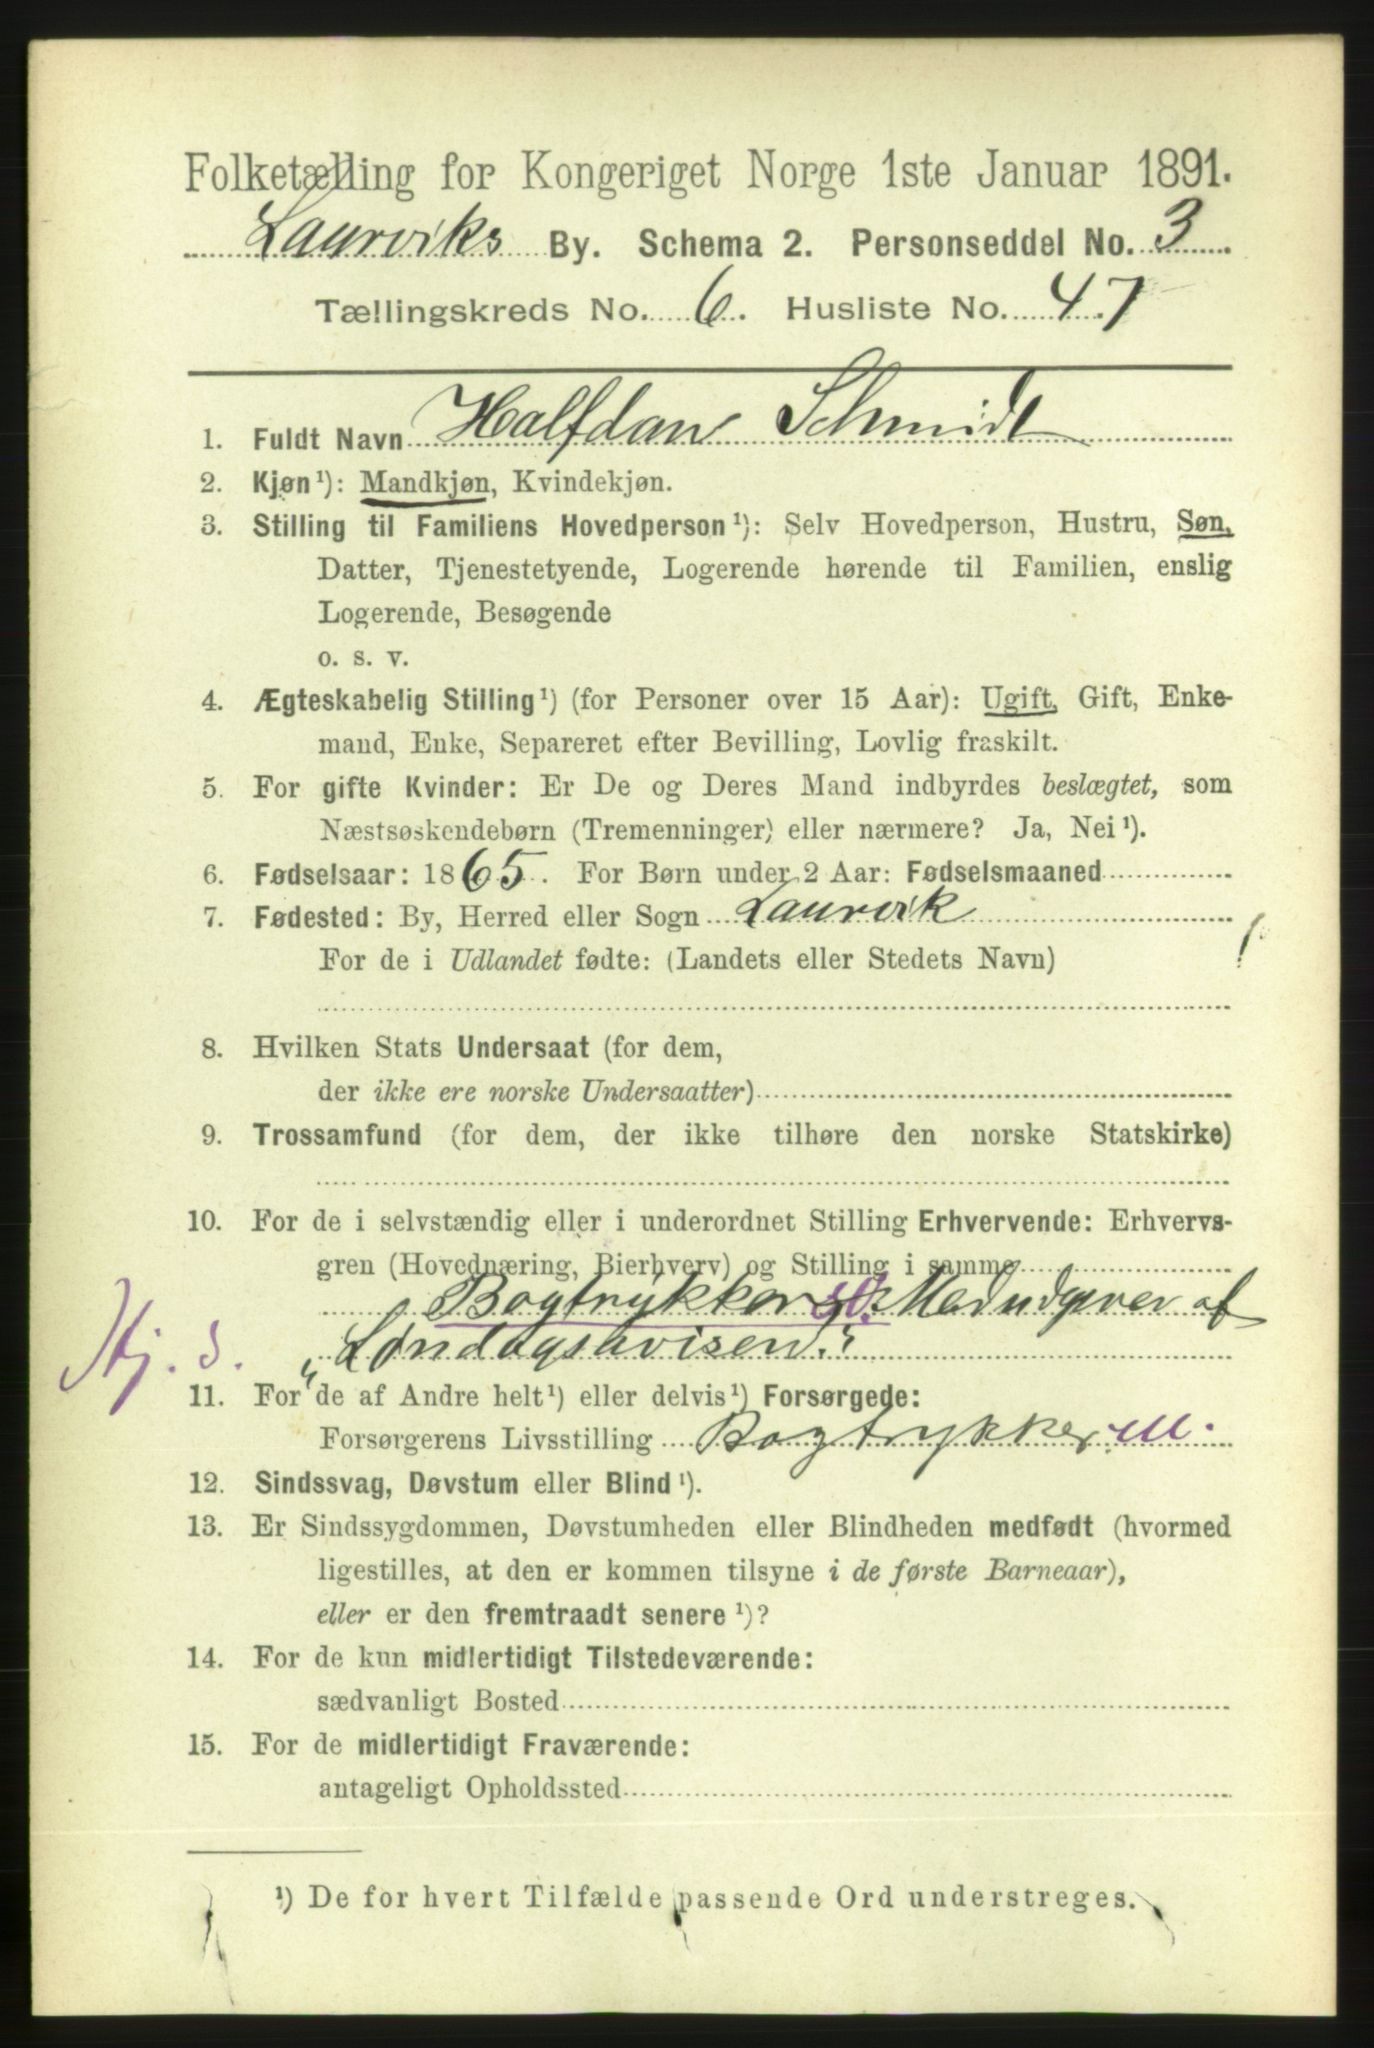 Folketælling for Kongeriget Norge 1ste Januar 1891.
Laurviks By. Schema 2. Personseddel No. 3
Tællingskreds No. 6. Husliste No. 47
1. Fuldt Navn Halfdan Schmidt
2. Kjøn ¹): Mandkjøn, Kvindekjøn.
3. Stilling til Familiens Hovedperson ¹): Selv Hovedperson, Hustru, Søn,
Datter, Tjenestetyende, Logerende hørende til Familien, enslig
Logerende, Besøgende
o. s. v.
4. Ægteskabelig Stilling ¹) (for Personer over 15 Aar): Ugift, Gift, Enke-
mand, Enke, Separeret efter Bevilling, Lovlig fraskilt.
5. For gifte Kvinder: Er De og Deres Mand indbyrdes beslægtet, som
Næstsøskendebørn (Tremenninger) eller nærmere? Ja, Nei ¹).
6. Fødselsaar: 1865. For Børn under 2 Aar: Fødselsmaaned
7. Fødested: By, Herred eller Sogn Laurvik
For de i Udlandet fødte: (Landets eller Stedets Navn)
8. Hvilken Stats Undersaat (for dem,
der ikke ere norske Undersaatter)
9. Trossamfund (for dem, der ikke tilhøre den norske Statskirke)
10. For de i selvstændig eller i underordnet Stilling Erhvervende: Erhvervs-
gren (Hovednæring, Bierhverv) og Stilling i samme
Bogtrykker Medudgiver af
"Søndagsavisen".
Hj. S.
11. For de af Andre helt ¹) eller delvis ¹) Forsørgede:
Forsørgerens Livsstilling Bogtrykker M.
12. Sindssvag, Døvstum eller Blind ¹).
13. Er Sindssygdommen, Døvstumheden eller Blindheden medfødt (hvormed
ligestilles, at den er kommen tilsyne i de første Barneaar),
eller er den fremtraadt senere ¹)?
14. For de kun midlertidigt Tilstedeværende:
sædvanligt Bosted
15. For de midlertidigt Fraværende:
antageligt Opholdssted
¹) De for hvert Tilfælde passende Ord understreges.